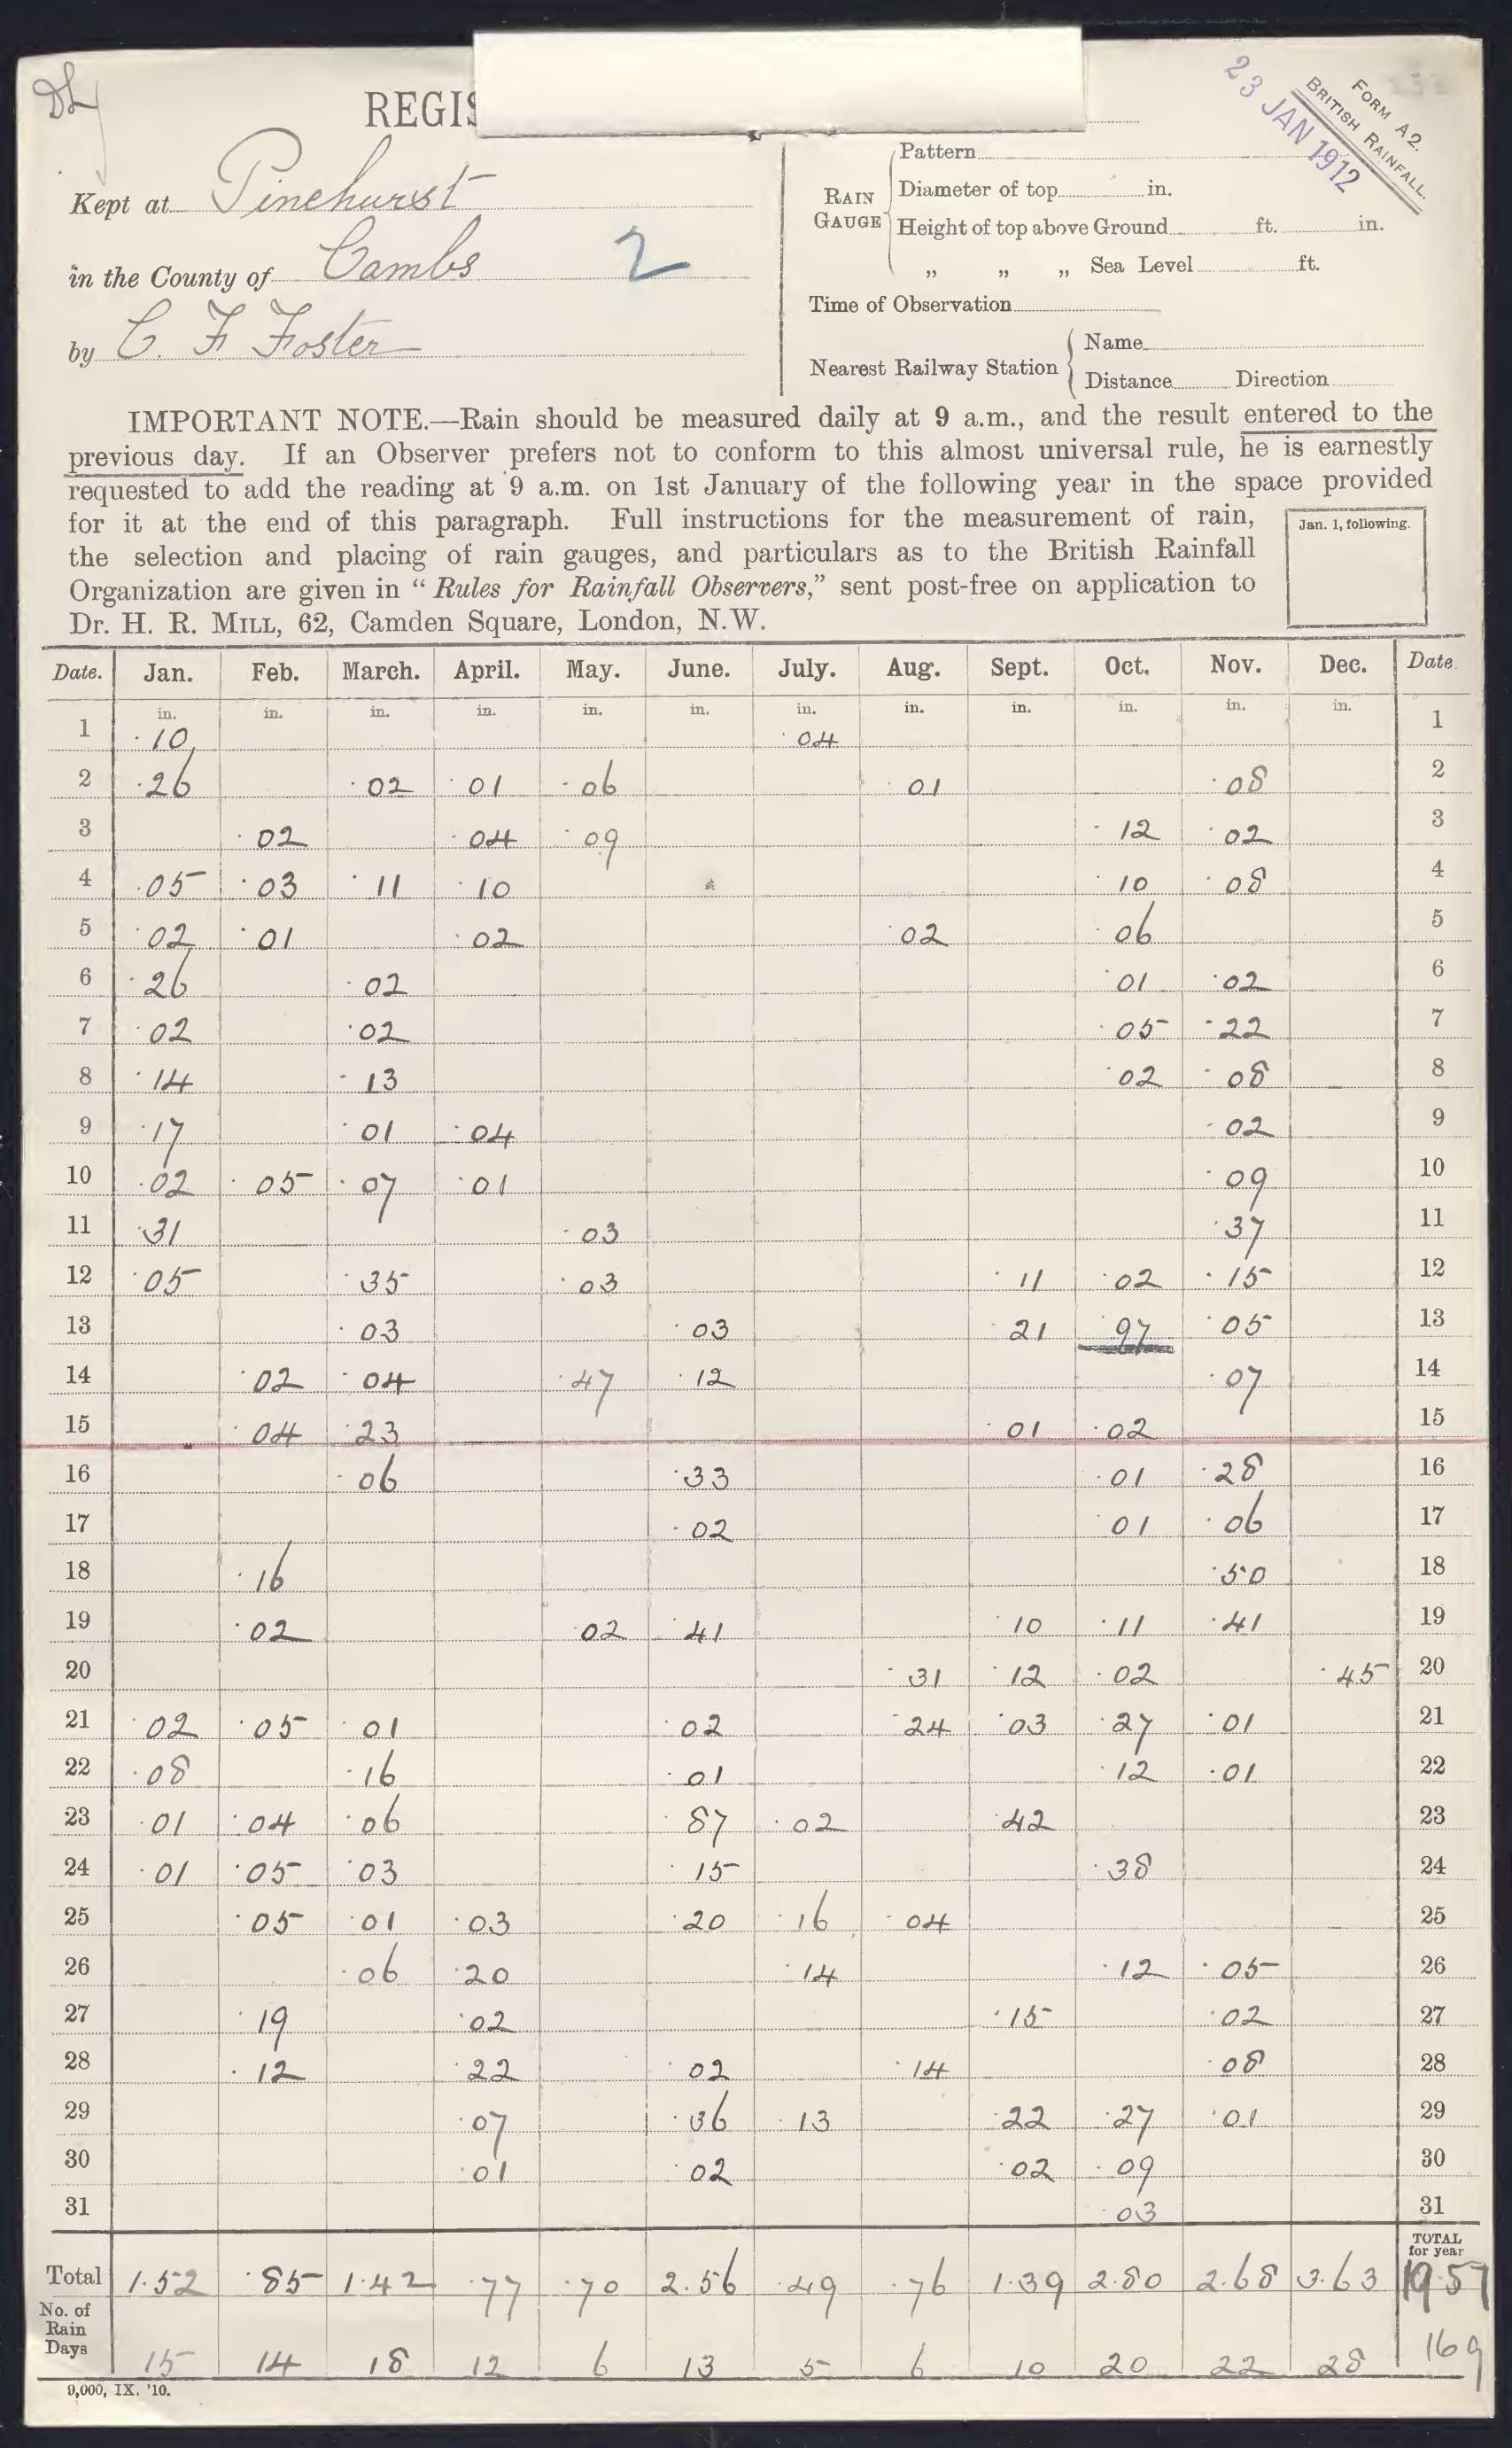 DL
REGIS
23 JAN 1912
FORM A2.
BRITISH RAINFALL.
Kept at Pinehurst
in the County of Cambs 2
by C. F Foster
RAIN GAUGE
Pattern
Diameter of top in.
Height of top above Ground ft. in.
„ „ „ Sea Level ft.
Time of Observation
Nearest Railway Station
Name
Distance Direction
IMPORTANT NOTE.—Rain should be measured daily at 9 a.m., and the result entered to the
previous day. If an Observer prefers not to conform to this almost universal rule, he is earnestly
requested to add the reading at 9 a.m. on 1st January of the following year in the space provided
for it at the end of this paragraph. Full instructions for the measurement of rain,
the selection and placing of rain gauges, and particulars as to the British Rainfall
Organization are given in “Rules for Rainfall Observers,” sent post-free on application to
Dr. H. R. MILL, 62, Camden Square, London, N.W.
Jan. 1, following.
Date. Jan. Feb. March. April. May. June. July. Aug. Sept. Oct. Nov. Dec. Date.
in. in. in. in. in. in. in. in. in. in. in. in.
1 ·10 ·04 1
2 ·26 ·02 ·01 ·06 ·01 ·08 2
3 ·02 ·04 ·09 ·12 ·02 3
4 ·05 ·03 ·11 ·10 ·10 ·08 4
5 ·02 ·01 ·02 ·02 ·06 5
6 ·26 ·02 ·01 ·02 6
7 ·02 ·02 ·05 ·22 7
8 ·14 ·13 ·02 ·08 8
9 ·17 ·01 ·04 ·02 9
10 ·02 ·05 ·07 ·01 ·09 10
11 ·31 ·03 ·37 11
12 ·05 ·35 ·03 ·11 ·02 ·15 12
13 ·03 ·03 ·21 ·97 ·05 13
14 ·02 ·04 ·47 ·12 ·07 14
15 ·04 ·23 ·01 ·02 15
16 ·06 ·33 ·01 ·28 16
17 ·02 ·01 ·06 17
18 ·16 ·50 18
19 ·02 ·02 ·41 ·10 ·11 ·41 19
20 ·31 ·12 ·02 ·45 20
21 ·02 ·05 ·01 ·02 ·24 ·03 ·27 ·01 21
22 ·08 ·16 ·01 ·12 ·01 22
23 ·01 ·04 ·06 ·87 ·02 ·42 23
24 ·01 ·05 ·03 ·15 ·38 24
25 ·05 ·01 ·03 ·20 ·16 ·04 25
26 ·06 ·20 ·14 ·12 ·05 26
27 ·19 ·02 ·15 ·02 27
28 ·12 ·22 ·02 ·14 ·08 28
29 ·07 ·36 ·13 ·22 ·27 ·01 29
30 ·01 ·02 ·02 ·09 30
31 ·03 31
TOTAL for year
Total 1·52 ·85 1·42 ·77 ·70 2.56 ·49 ·76 1·39 2·80 2·68 3·63 19·57
No. of Rain Days 15 14 18 12 6 13 5 6 10 20 22 28 169
9,000, IX. '10.